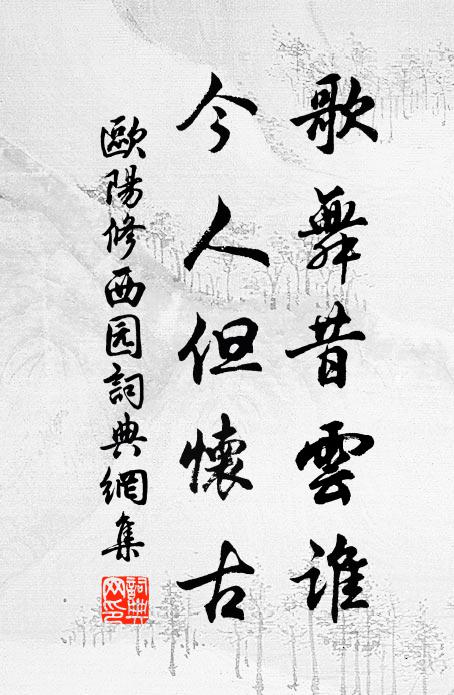 歌舞昔雲誰
今人但懷古
歐陽修西园詞典網集
詞典網印